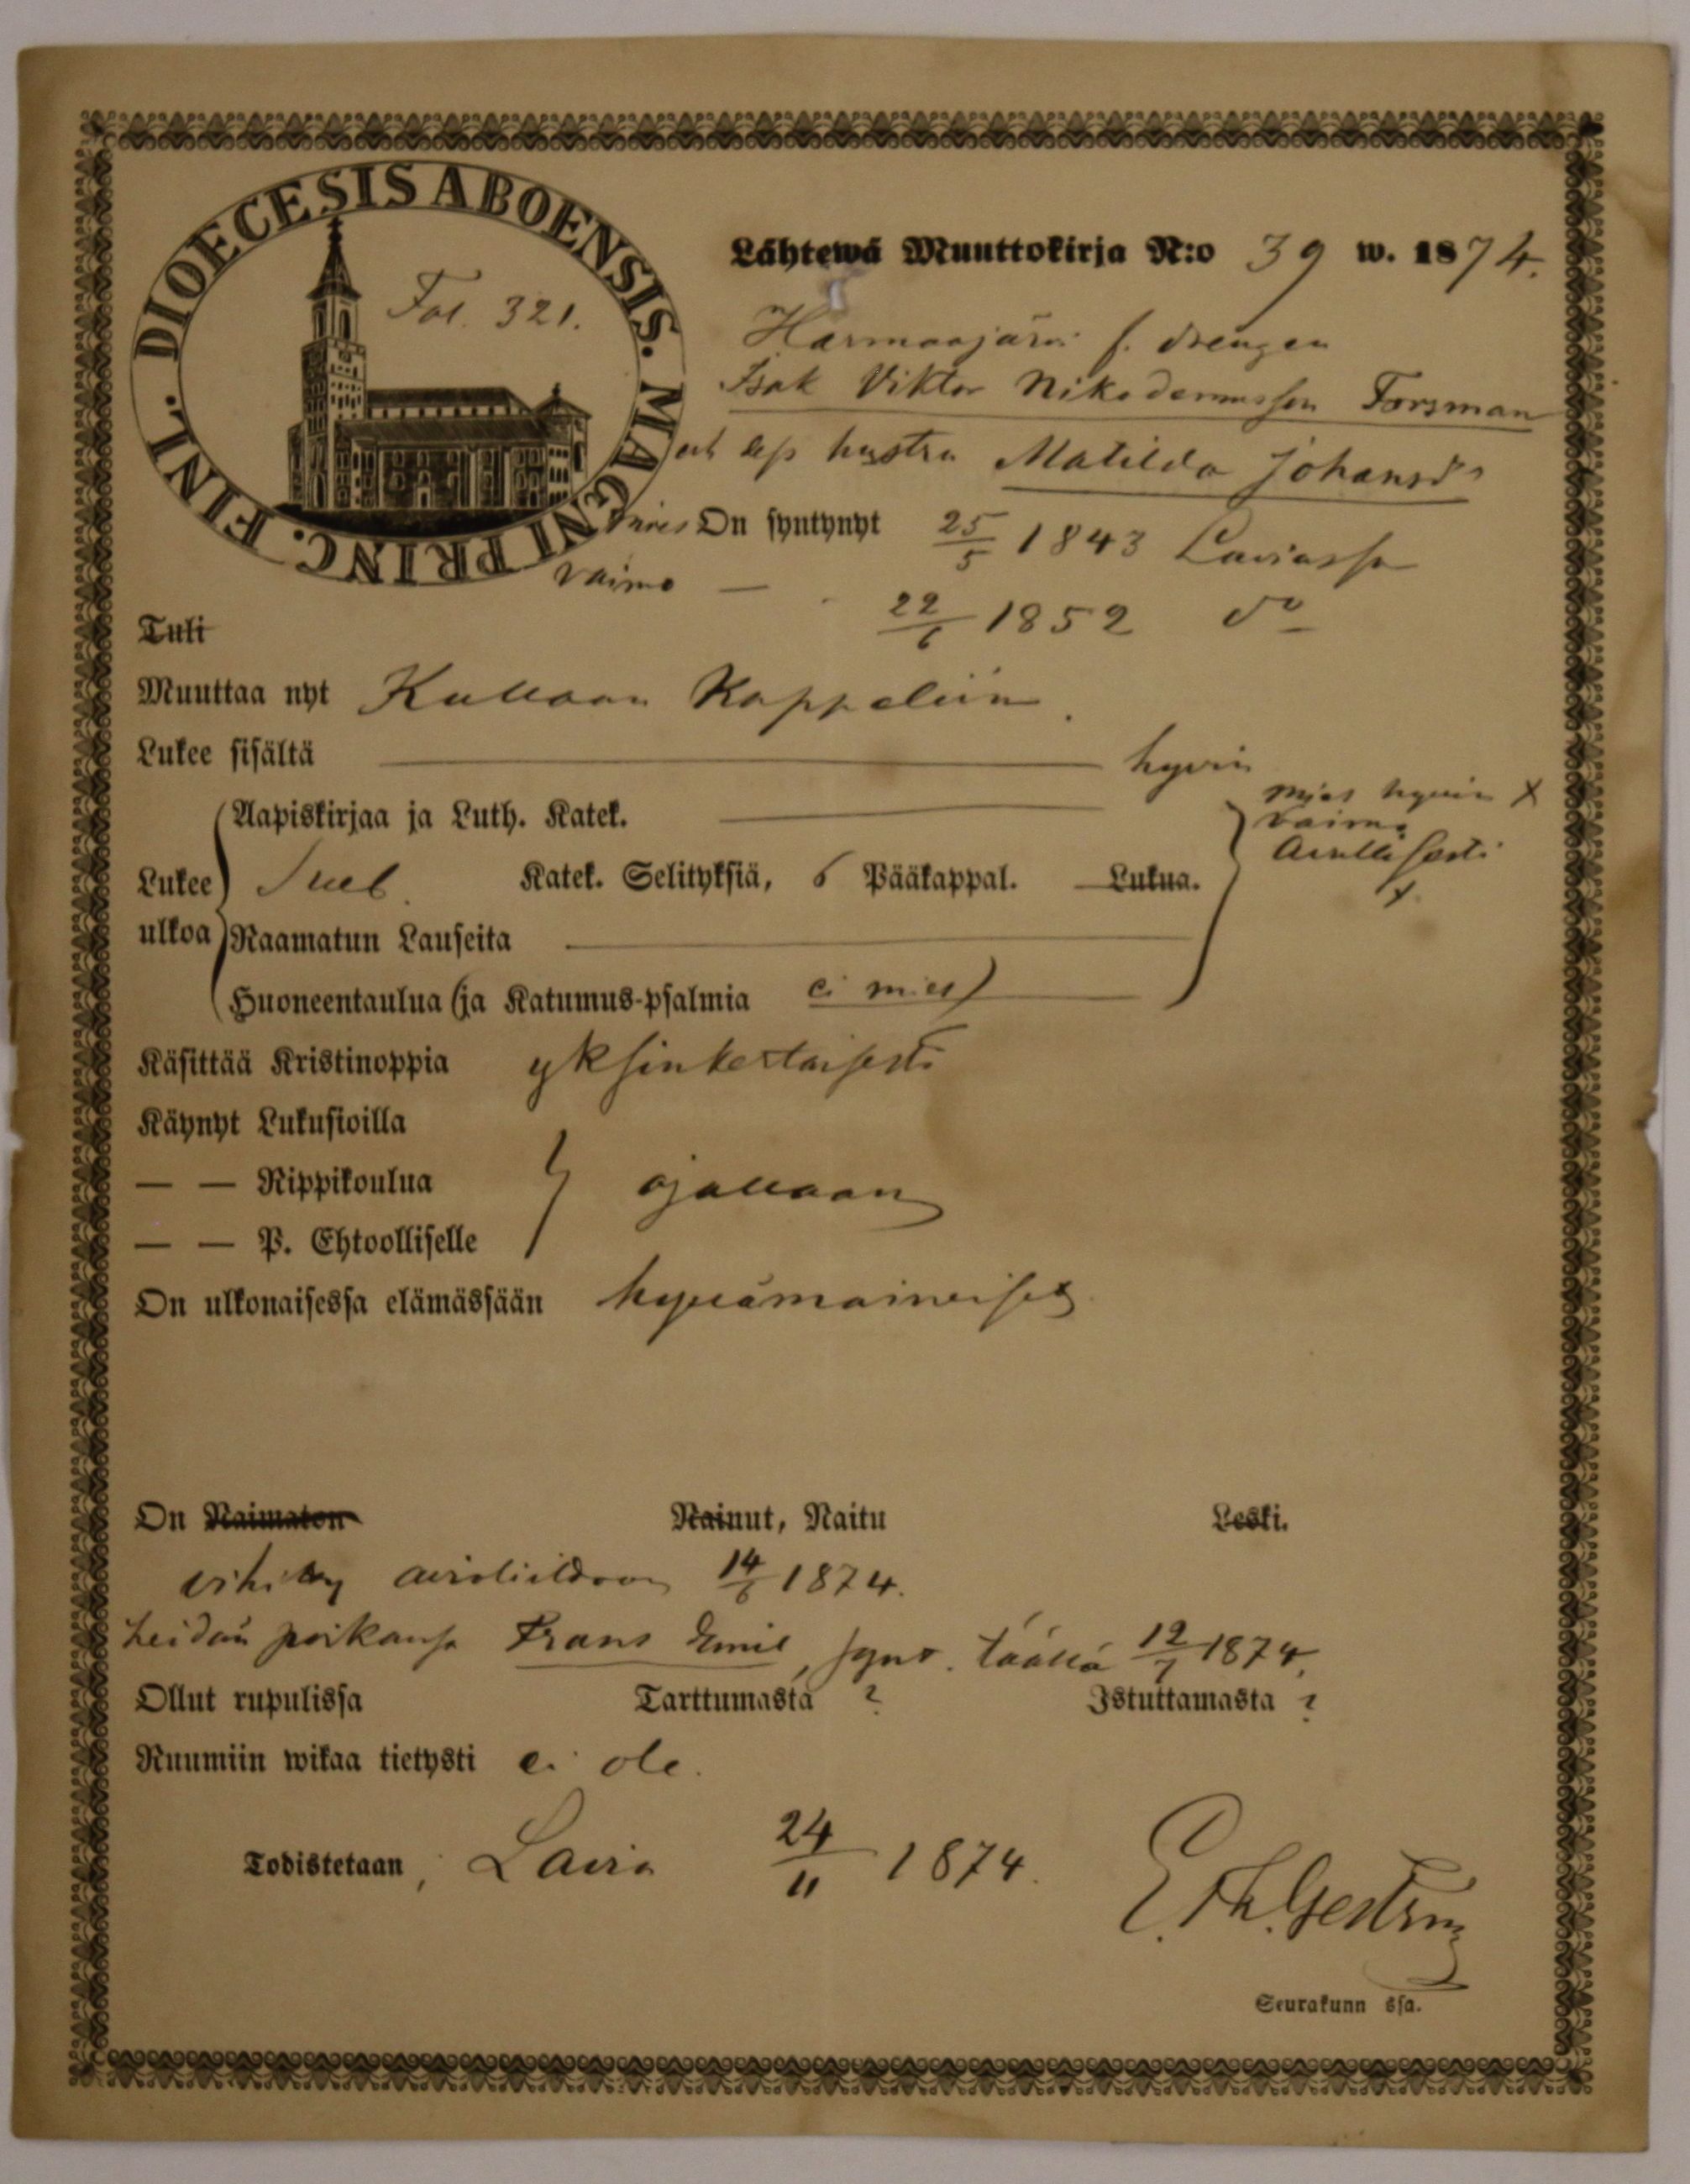 DIOECESIS ABOENSIS. MAGNI PRINC. FINL.
Fol. 321.
Lähtewä Muuttokirja N:o 39 w. 1874.
Harmaajärvi f. drengen
Isak Viktor Nikodemusson Forsman
och dess hustru Matilda Johansdr
mies On syntynyt 25/5 1843 Laviassa
vaimo — 22/6 1852 do
Tuli
Muuttaa nyt Kullaan Kappeliin.
Lukee sisältä hyvin
Aapiskirjaa ja Luth. Katek.
mies hyvin x
vaimo
Lukee ulkoa
Katek. Selityksiä, 6 Pääkappal. Lukua.
x
Raamatun Lauseita
Huoneentaulua (ja Katumus-psalmia ei mies)
Käsittää Kristinoppia yksinkertaisesti
Käynyt Lukusioilla
— — Rippikoulua ajallaan
— — P. Ehtoolliselle
On ulkonaisessa elämässään hyvämaineiset
On Naimaton Nainut, Naitu Leski.
vihitty avioliittoon 14/6 1874.
heidän poikansa Frans Emil, synt. täällä 12/7 1874.
Ollut rupulissa Tarttumasta ? Istuttamasta ?
Ruumiin wikaa tietysti ei ole.
Todistetaan, Lavia 24/11 1874.
E. Th. Gestrin
Seurakunn ssa.